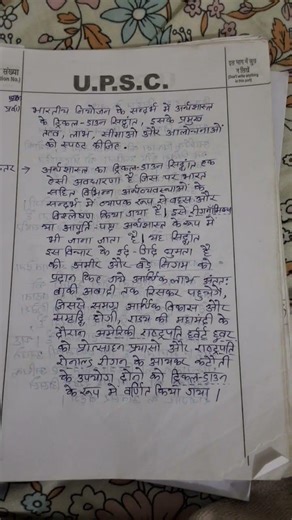 संख्या
U.P.S.C.
भारतीय नियोजन के सन्दर्भ में अर्थशास्त्र
के ट्रिकल-डाउन सिद्धांत, इसके प्रमुख
तत्व, लाभ, सीमाओं और आलोचनाओं
को स्पष्ट कीजिए.
अर्थशास्त्र का ट्रिकल-डाउन सिद्धांत एक
ऐसी अवधारणा है जिस पर भारत
सहित विभिन्न अर्थव्यवस्थाओं के
सन्दर्भ में व्यापक रूप से बहस और
विश्लेषण किया गया है। इसे
या आपूर्ति-पक्ष अर्थशास्त्र के रूप में
भी जाना जाता है। यह सिद्धांत
इस विचार के इर्द-गिर्द घूमता है
की अमीर और बड़े निगम को
प्रदान किए गये आर्थिक लाभ अंततः
बाकी आबादी तक रिसकर पहुंचेंगे,
जिससे समग्र आर्थिक विकास और
समृद्धि होगी, राज्य की महामंदी के
दौरान अमेरिकी राष्ट्रपति हर्बर्ट हूवर
की प्रोत्साहन प्रयासों और राष्ट्रपति
रोनाल्ड रीगन के आयकर कटौती
के उपयोग दोनों को ट्रिकल-डाउन
के रूप में वर्णित किया गया।